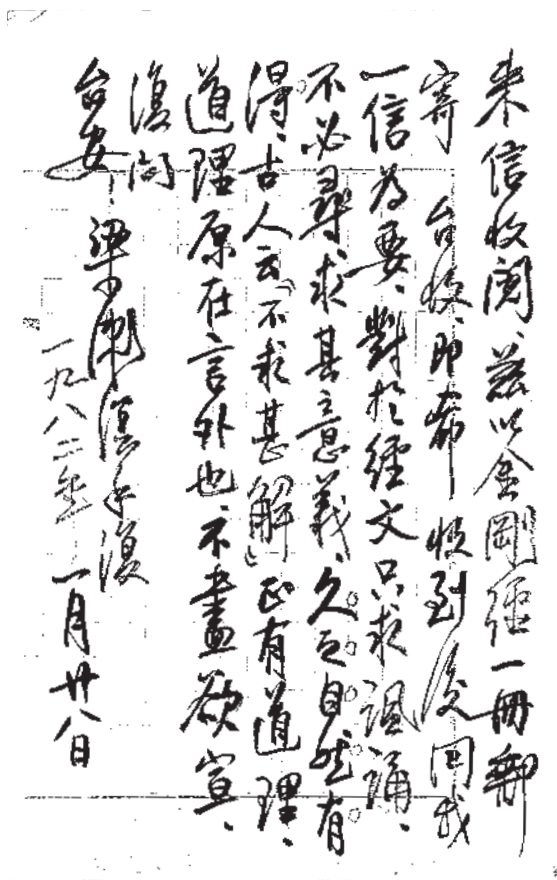 來信收閱、茲以金剛經一冊郵
寄 台收、即希 收到後回我
一信為要、對於經文只求諷誦、
不必尋求其意義、久之自然有
得、古人云「不求甚解」正有道理、
道理原在言外也、不盡欲宣、
復問
台安、 梁漱溟手復
一九八二年一月廿八日